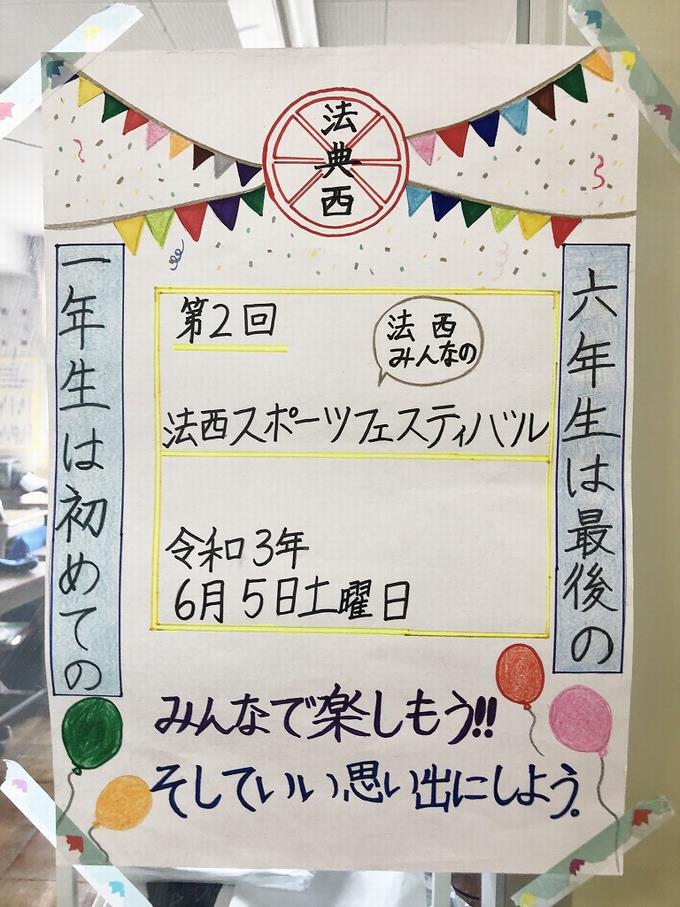 法典西
六年生は最後の
一年生は初めての
第2回
法西
みんなの
法西スポーツフェスティバル
令和3年
6月5日土曜日
みんなで楽しもう!!
そしていい思い出にしよう。